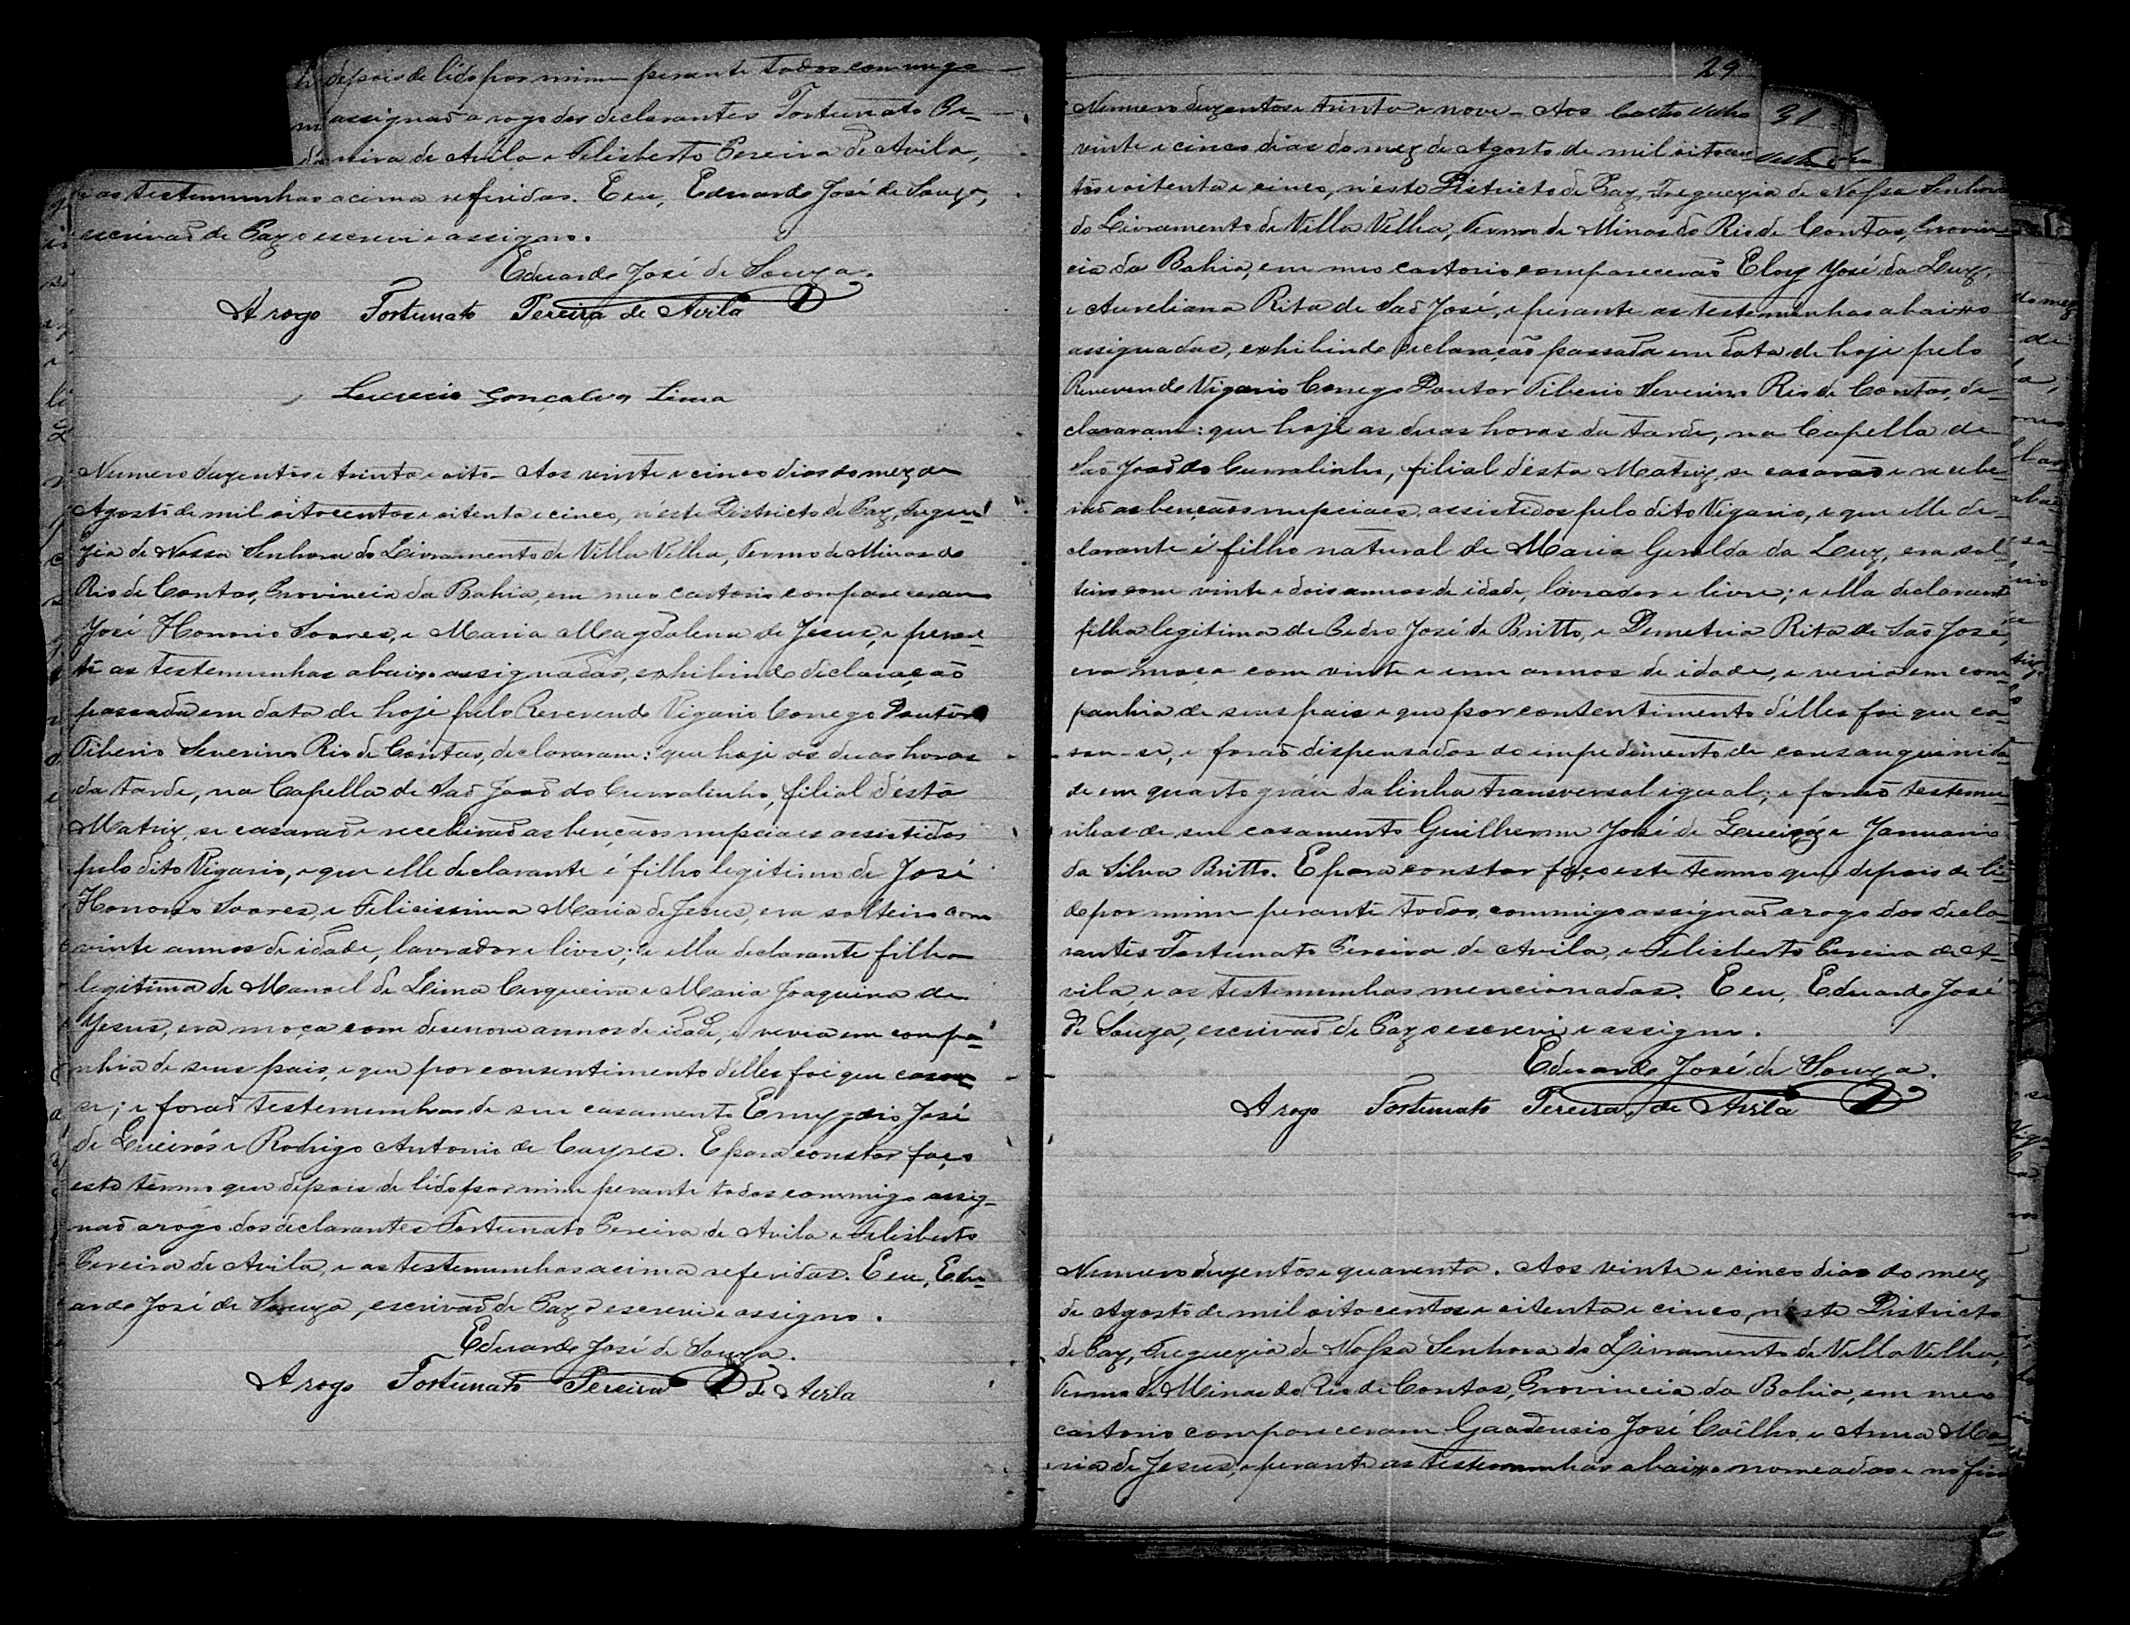 depois de lido por mim perante todos commigo
assignaõ a rogo dos declarantes Fortunato Pe-
reira de Avila e Felisberto Pereira de Avila,
e as testemunhas acima referidas. E eu, Eduardo José de Souza,
escrivaõ de Paz o escrevi e assigno.
Eduardo José de Souza.
A rogo Fortunato Pereira de Avila
Gonçalves Lima
Numero duzentos e trinta e oito - Aos vinte e cinco dias do mez de
Agosto de mil oitocentos e oitenta e cinco, n'este Districto de Paz, Fregue-
zia de Nossa Senhora do Livramento de Villa Velha, Termo de Minas do
Rio de Contas, Provincia da Bahia, em meu cartorio compareceram
José Honorio Soares, e Maria Magdalena de Jesus, e peran-
te as testemunhas abaixo assignadas, exhibindo declaração
passada em data de hoje pelo Reverendo Vigario Conego Doutor
Tiberio Severino Rio de Contas, declararam: que hoje as duas horas
da tarde, na Capella de Saõ Joaõ do Curralinho, filial d'esta
Matriz, se casaraõ e receberaõ as bençaõs nupciaes assistidos
pelo dito Vigario, e que elle declarante é filho legitimo de José
Honorio Soares, e Felicissima Maria de Jesus, era solteiro com
vinte annos de idade, lavrador e livre; e ella declarante filha
legitima de Manoel de Lima Cerqueira e Maria Joaquina de
Jesus, era moça com desenove annos de idade, e vevia em compa-
nhia de seus pais, e que por consentimento d'elles foi que casou-
se; e foraõ testemunhas de seu casamento Emygdio José
de Queirós e Rodrigo Antonio de Cayres. E para constar faço
este termo que depois de lido por mim perante todos commigo assig-
naõ a rogo dos declarantes Fortunato Pereira de Avila e Felisberto
Pereira de Avila, e as testemunhas acima referidas. E eu, Edu-
ardo José de Souza, escrivaõ de Paz o escrevi e assigno.
Eduardo José de Souza.
A rogo Fortunato Pereira de Avila
29
31
Numero duzentos e trinta e nove - Aos
vinte e cinco dias do mez de Agosto de mil oitocen-
tos e oitenta e cinco, n'este Districto de Paz, Freguezia de Nossa Senhora
do Livramento de Villa Velha, Termo de Minas do Rio de Contas, Provin-
cia da Bahia, em meu cartorio compareceraõ Eloy José da Luz,
e Aureliana Rita de Saõ José, e perante as testemunhas abaixo
assignadas, exhibindo declaração passada em data de hoje pelo
Reverendo Vigario Conego Doutor Tiberio Severino Rio de Contas, de-
clararam: que hoje as duas horas da tarde, na Capella de
Saõ Joaõ do Curralinho, filial d'esta Matriz, se casaraõ e recebe-
raõ as bençaõs nupciaes assistidos pelo dito Vigario, e que elle de-
clarante é filho natural de Maria Geralda da Luz, era sol-
teiro com vinte e dois annos de idade, lavrador e livre; e ella declarante
filha legitima de Pedro José de Britto, e Demetria Rita de São José,
era moça com vinte e um annos de idade, e vevia em com-
panhia de seus pais e que por consentimento d'elles foi que ca-
sou-se, e foraõ dispensados do impedimento de consanguinida-
de em quarto gráu da linha transversal igual; e foraõ testemu-
nhas de seu casamento Guilherme José de Queiroz e Januario
da Silva Britto. E para constar faço este termo que depois de li-
do por mim perante todos, commigo assignaõ a rogo dos decla-
rantes Fortunato Pereira de Avila, e Felisberto Pereira de A-
vila, e as testemunhas mencionadas. E eu, Eduardo José
de Souza, escrivaõ de Paz o escrevi e assigno.
Eduardo José de Souza.
A rogo Fortunato Pereira de Avila
Numero duzentos e quarenta. Aos vinte e cinco dias do mez
de Agosto de mil oitocentos e oitenta e cinco, n'este Districto
de Paz, Freguezia de Nossa Senhora do Livramento de Villa Velha,
Termo de Minas do Rio de Contas, Provincia da Bahia, em meu
cartorio compareceram Gaudencio José Coêlho, e Anna Ma-
ria de Jesus, e perante as testemunhas abaixo nomeadas e no fim